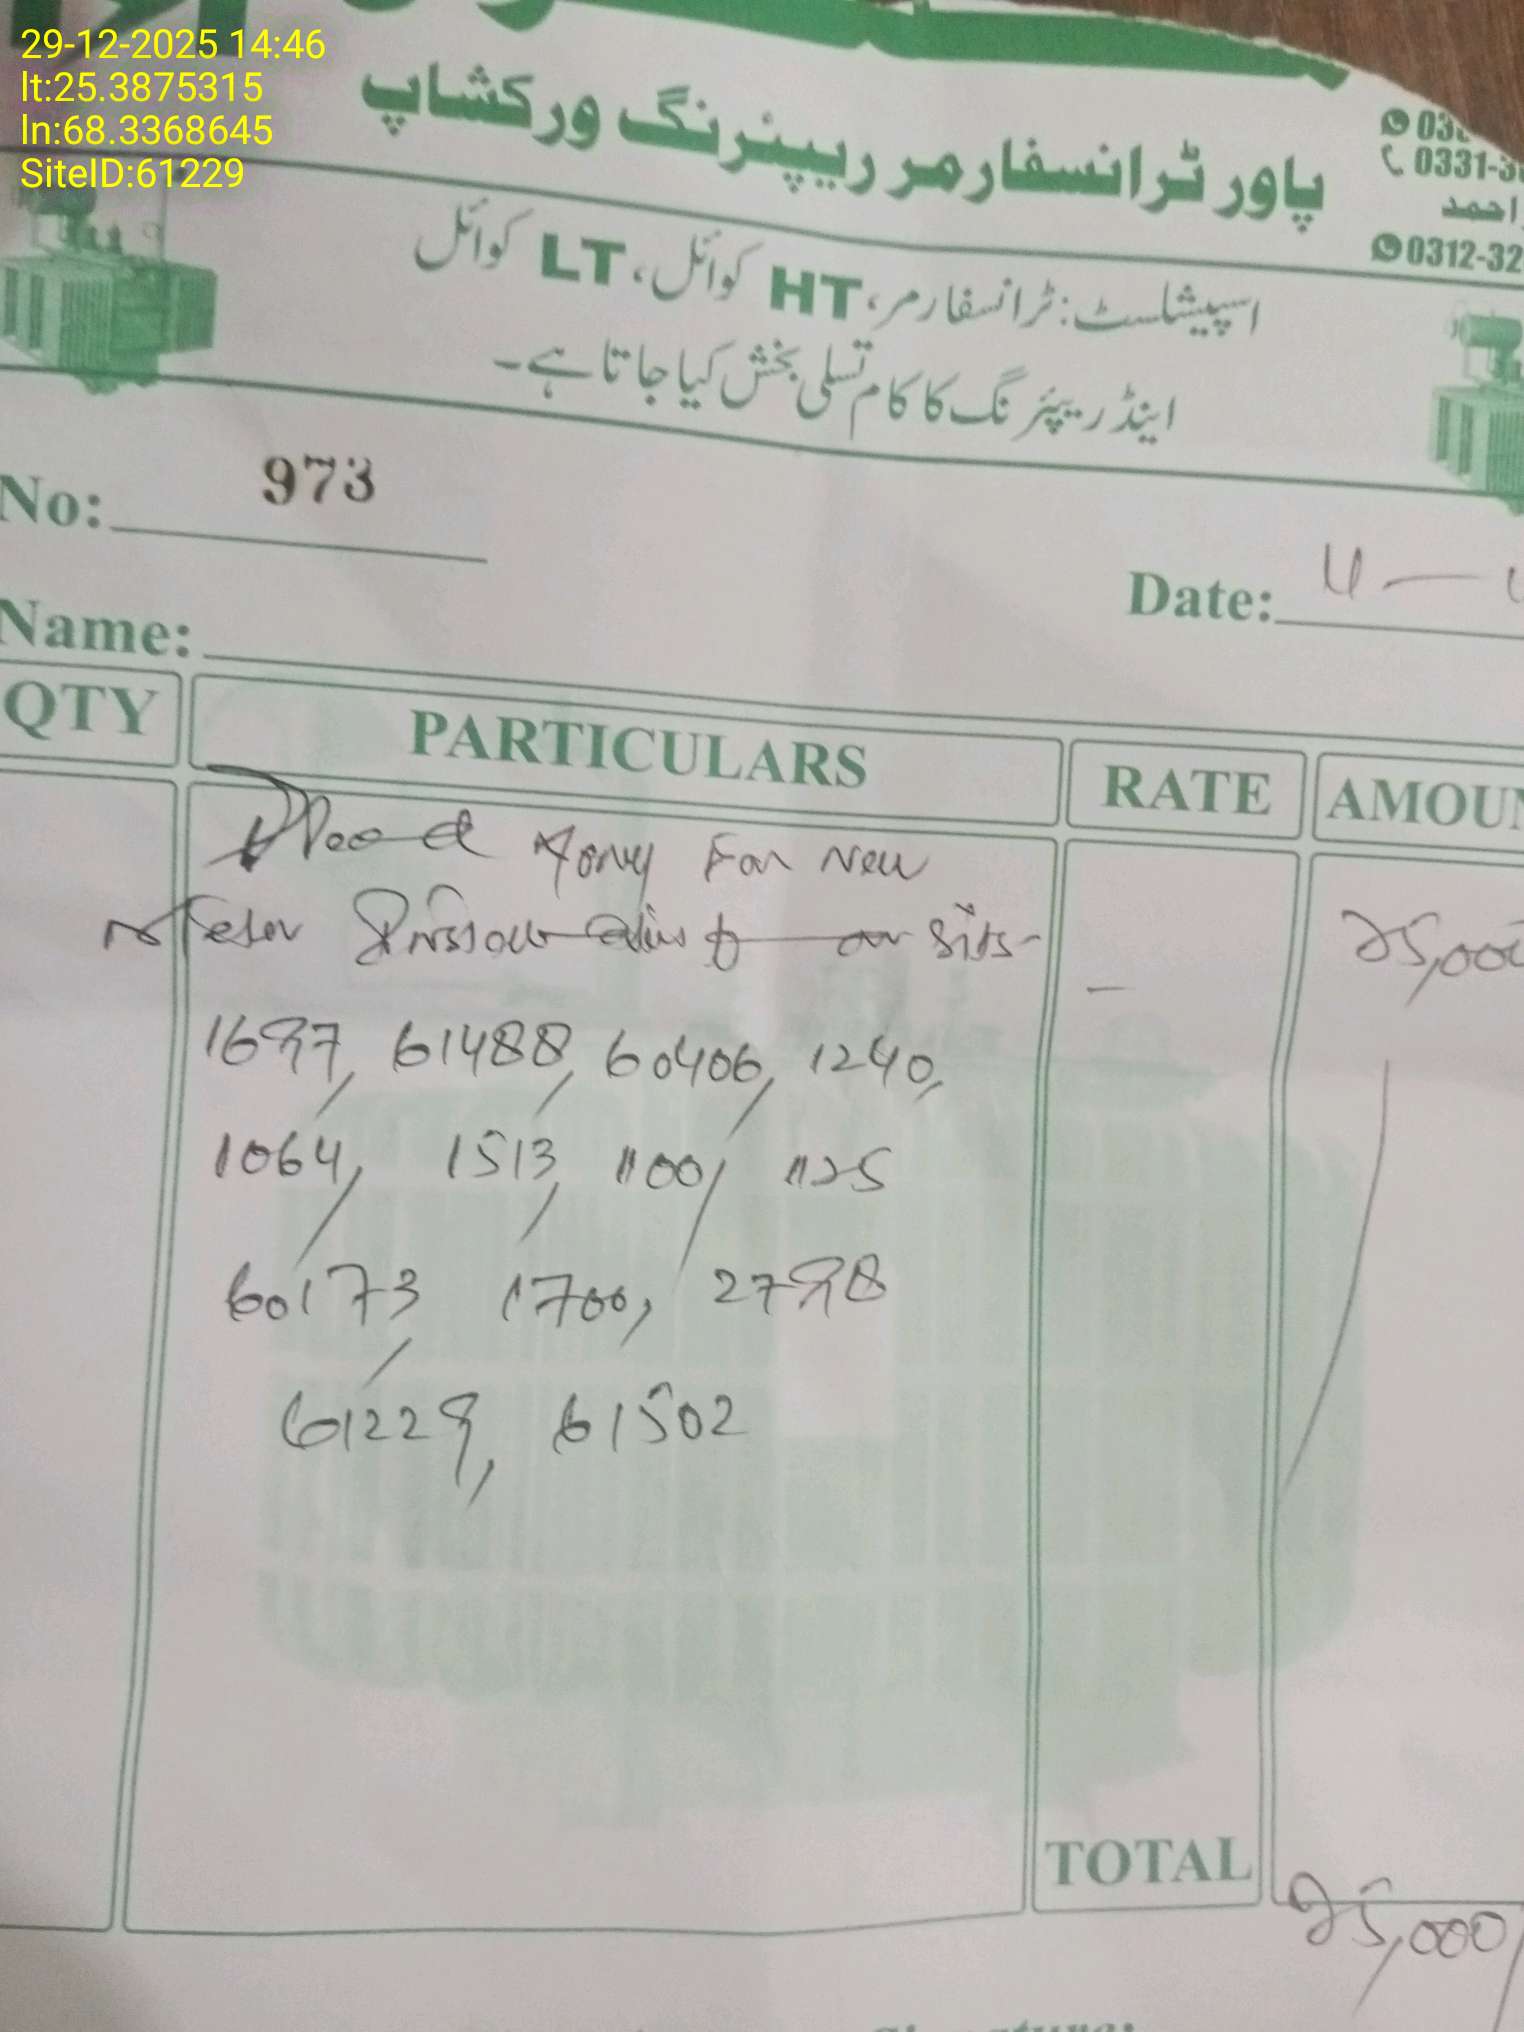 29-12-2025 14:46
lt:25.3875315
ln:68.3368645
SiteID:61229
پاور ٹرانسفارمر ریپئرنگ ورکشاپ
0331-3
احمد
0312-32
اسپیشلسٹ: ٹرانسفارمر، HT کوائل، LT کوائل
اینڈ ریپئرنگ کا کام تسلی بخش کیا جاتا ہے۔
No: 973
Date: 4 —
Name:
QTY PARTICULARS RATE AMOUN
For New
25,000
1697, 61488, 60406, 1240,
1064, 1513, 1100, 1125
60173, 1700, 2798
61229, 61502
TOTAL 25,000/